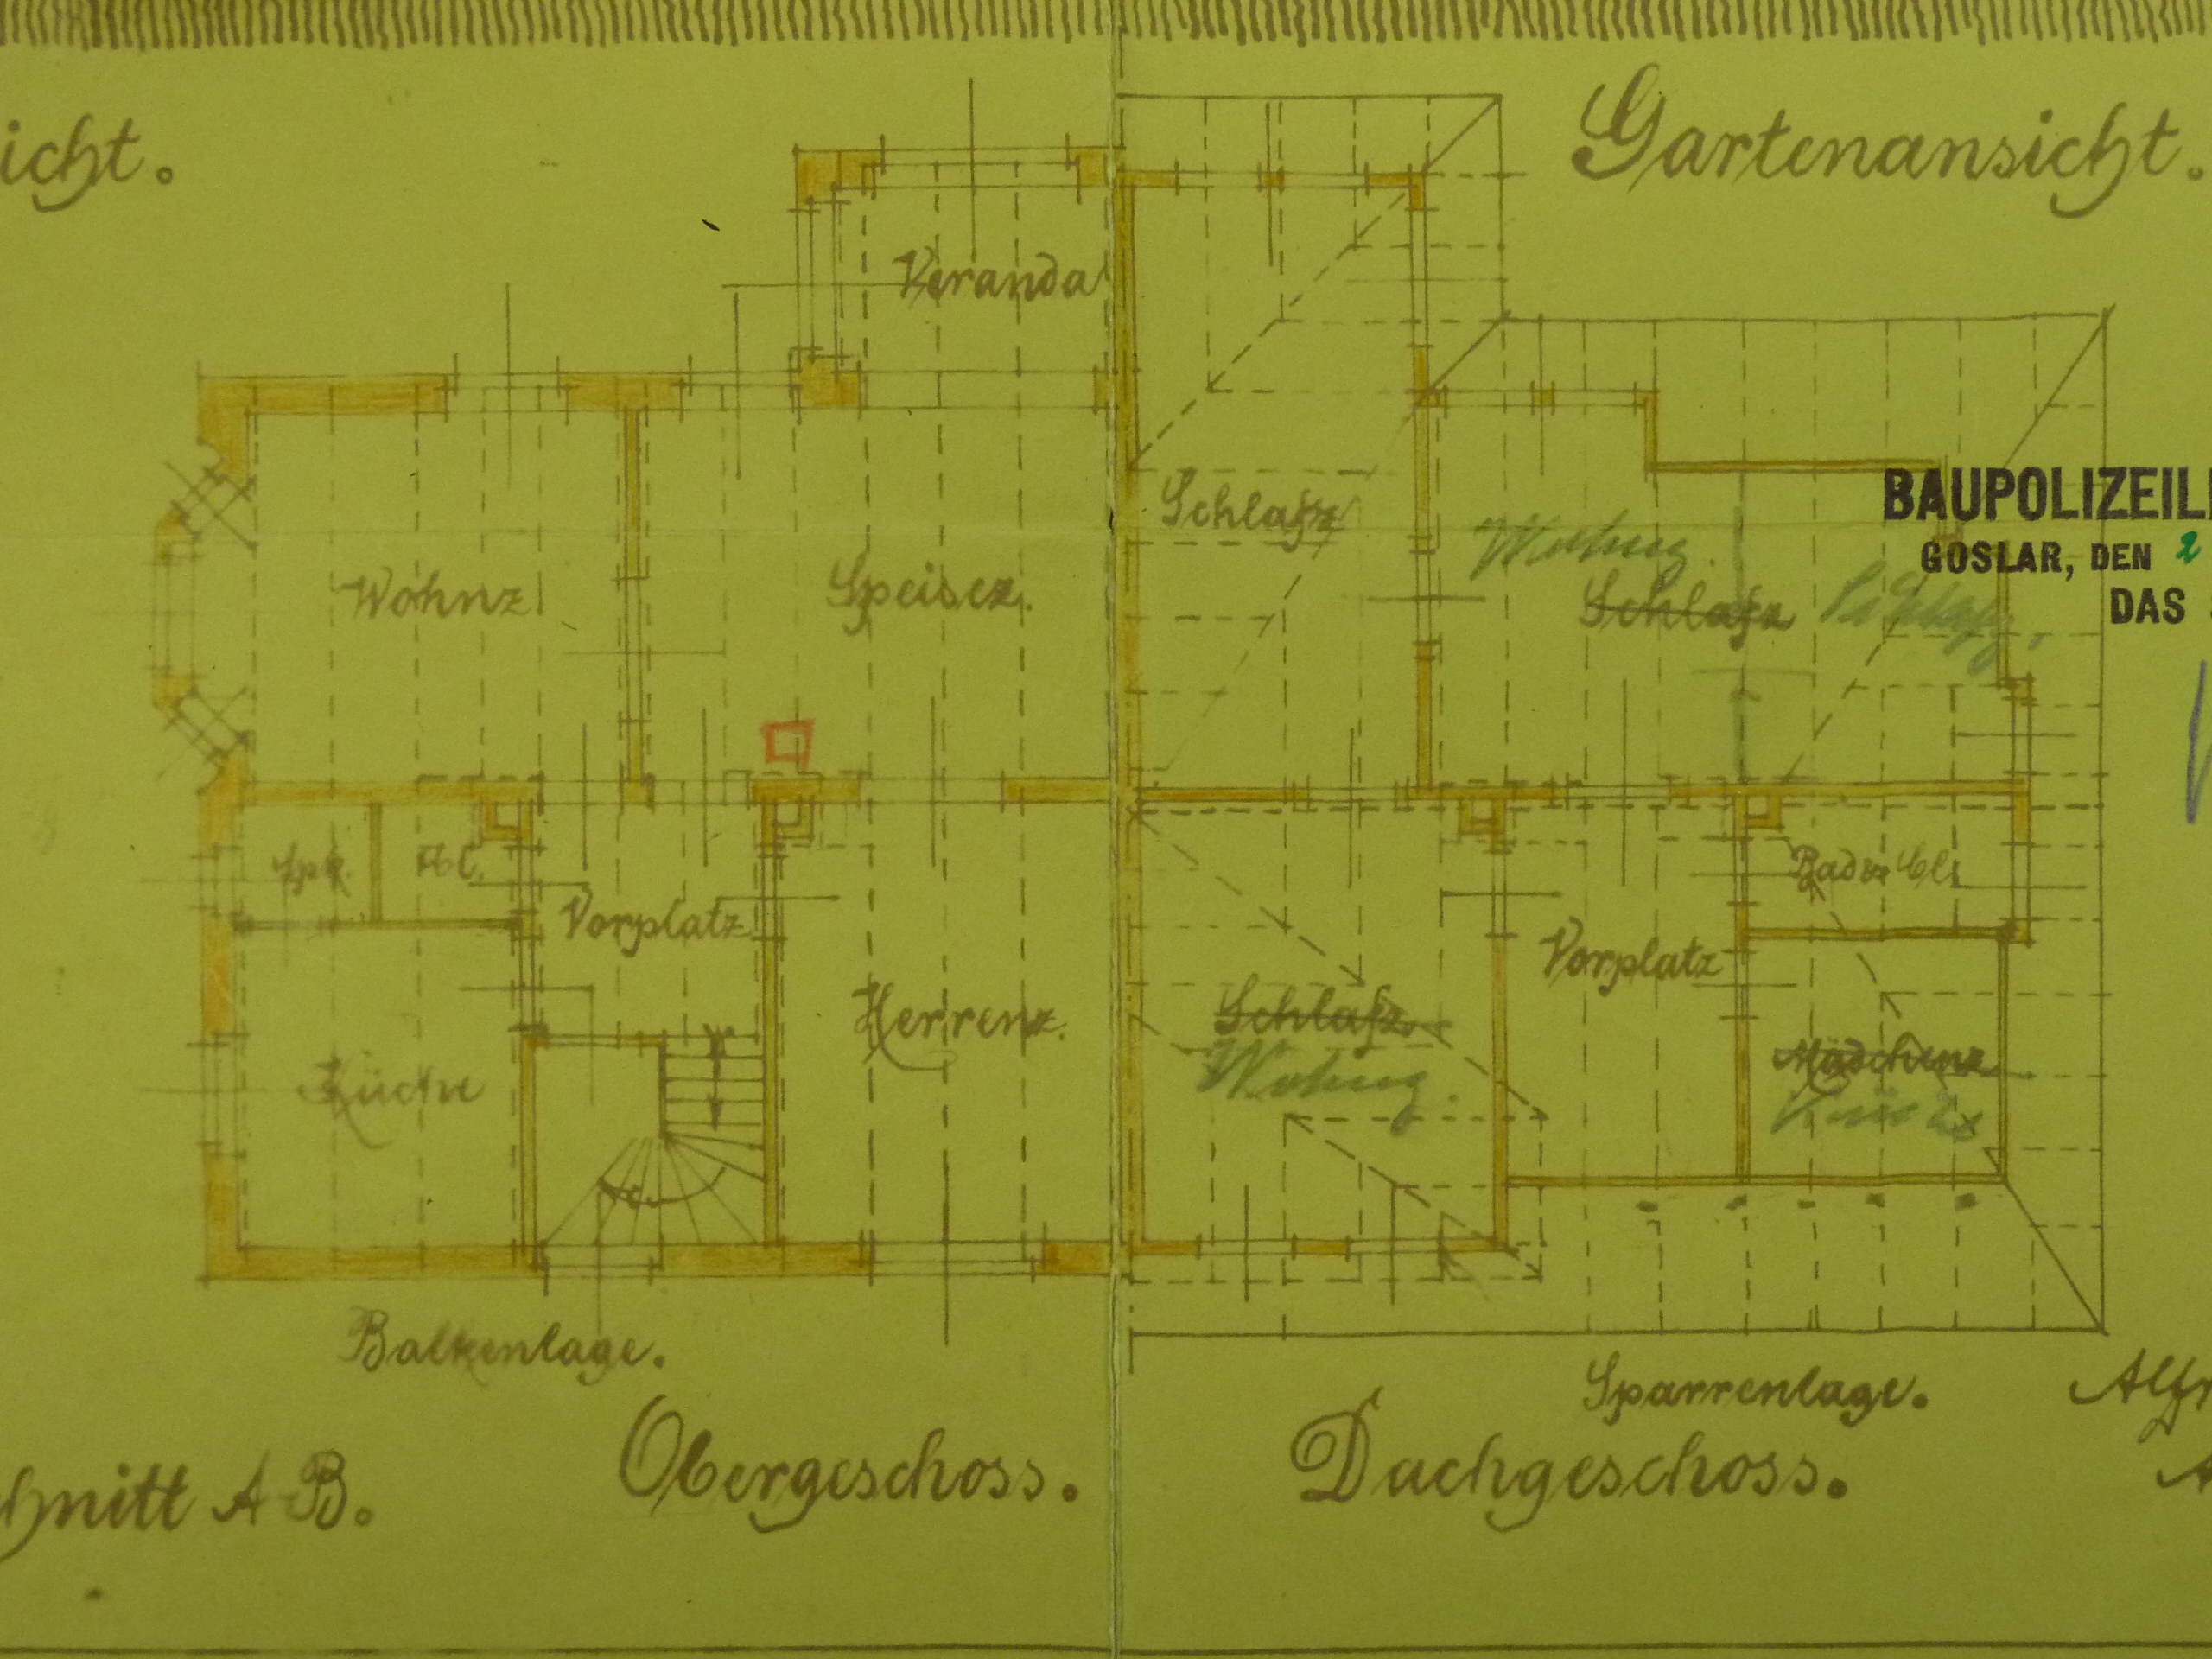 icht.
Gartenansicht.
Veranda
Wohnz.
Speisez.
Schlafz.
Schlafz.
BAUPOLIZEIL
GOSLAR, DEN 2
DAS
Spk.
Vorplatz
Herrenz.
Küche
Vorplatz
Bad u.
Schlafz.
Wohnz.
Mädchenz.
Küche
Balkenlage.
Sparrenlage.
Alfr
Obergeschoss.
Dachgeschoss.
chnitt A-B.
A